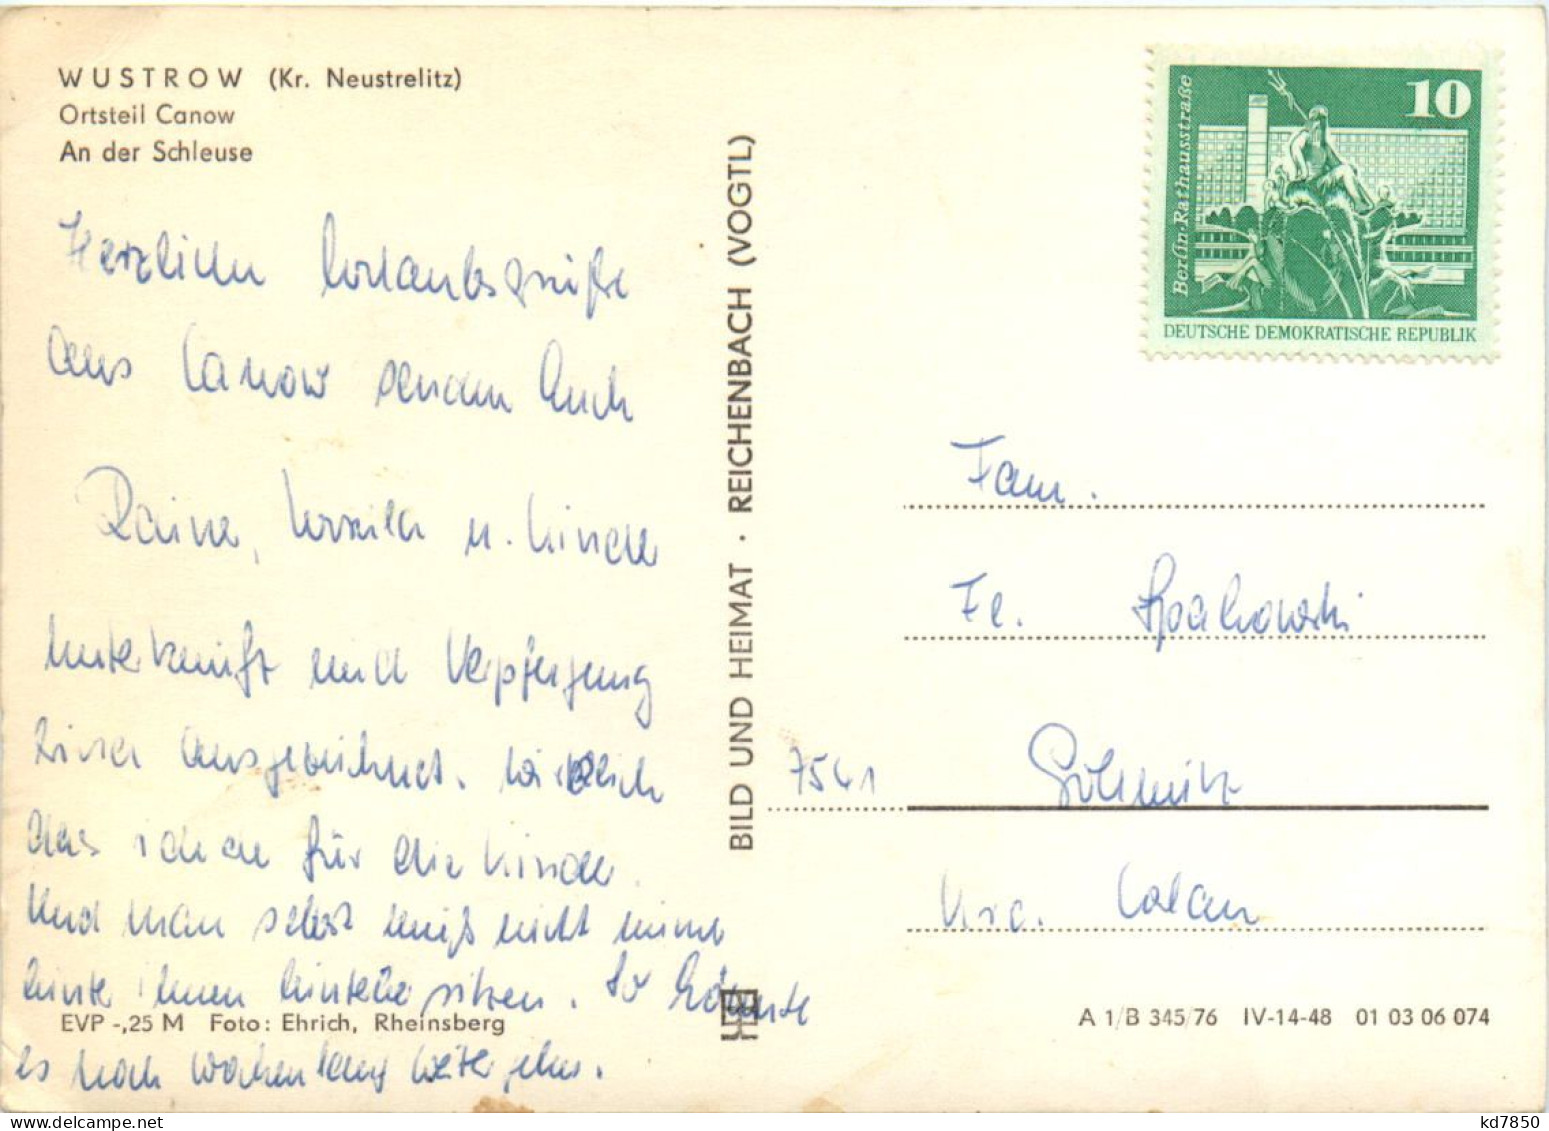 WUSTROW (Kr. Neustrelitz)
Ortsteil Canow
An der Schleuse
Herzliche Urlaubsgrüße
aus Canow senden Euch
Rainer, u. Kinder
Unterkunft und Verpflegung
sind ausgezeichnet. Wirklich
das ideale für die Kinder.
Und man selbst muß nicht immer
hinter ihnen hinterher sitzen. So könnte
es noch wochenlang weiter gehen.
EVP -,25 M Foto: Ehrich, Rheinsberg
BILD UND HEIMAT · REICHENBACH (VOGTL)
10
Berlin-Rathausstraße
DEUTSCHE DEMOKRATISCHE REPUBLIK
Fam.
Fr.
7541
Krs. Calau
A 1/B 345/76 IV-14-48 01 03 06 074
kd7850